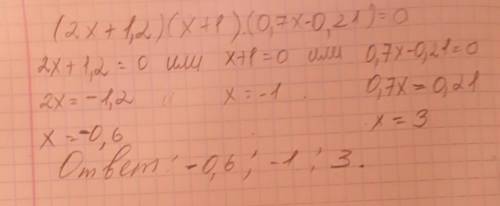 (2x+1,2)(x+1)·(0,7x-0,21)=0
2x+1,2=0 или x+1=0 или 0,7x-0,21=0
2x=-1,2 x=-1 0,7x=0,21
x=-0,6 x=3
Ответ: -0,6; -1; 3.